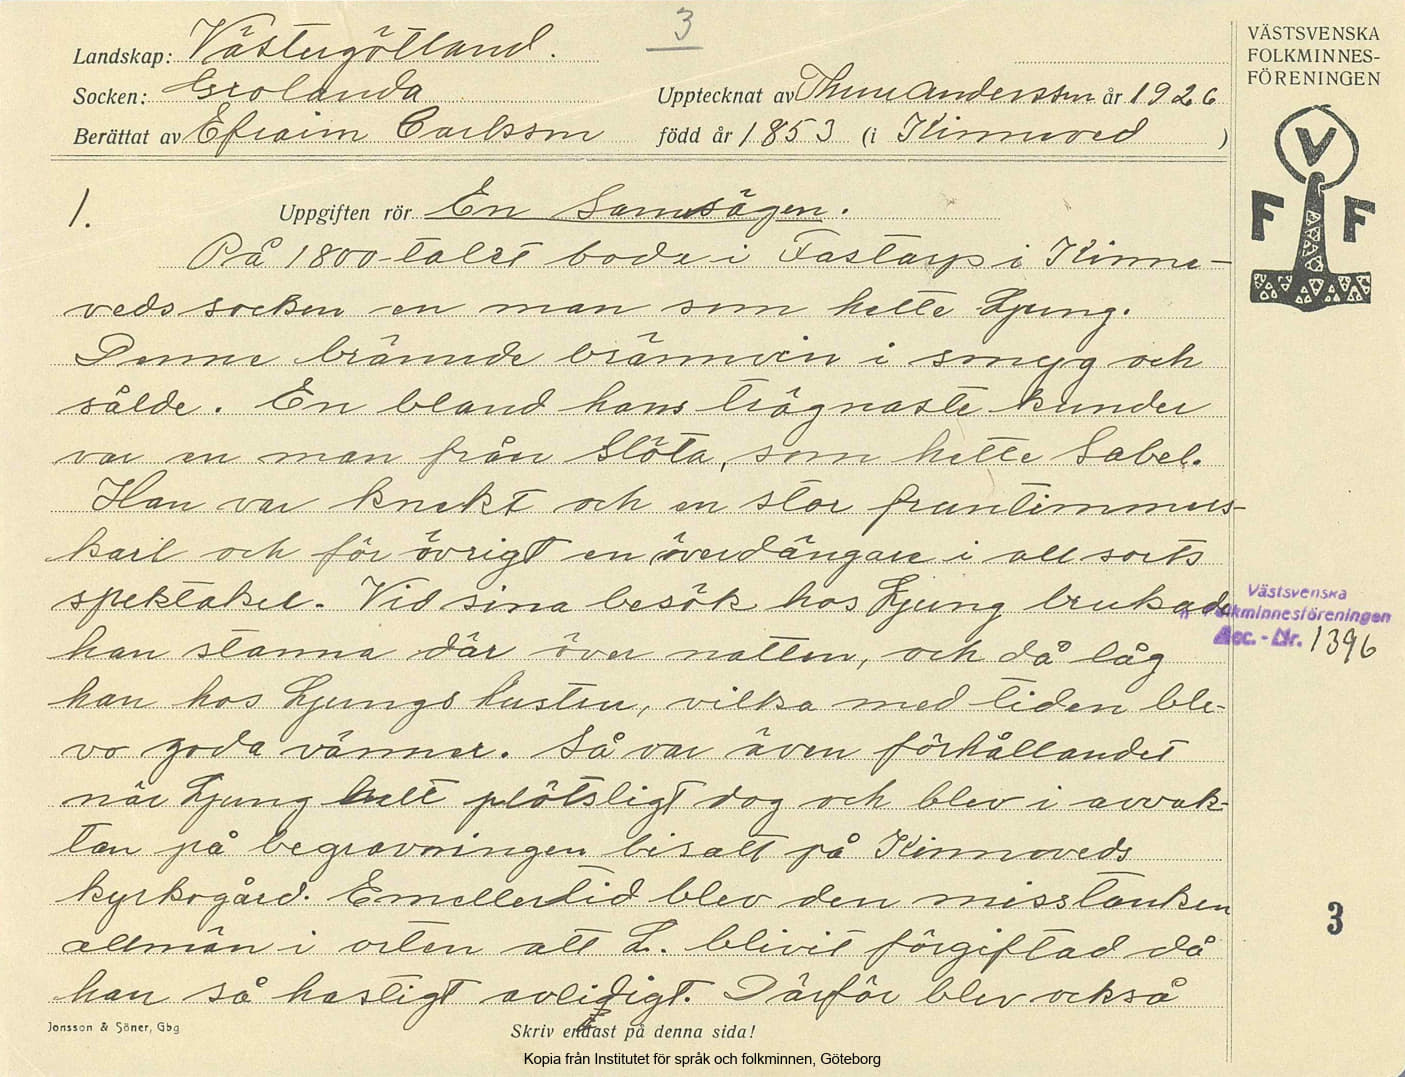 3
Landskap: Västergötland.
Socken: Grolanda
Upptecknat av Thure Andersson år 1926
Berättat av Efraim Carlsson född år 1853 (i Kinneved )
1. Uppgiften rör En Sannsägen.
På 1800-talet boda i Fastarp i Kinne-
veds socken en man som hette Ljung.
Denne brännde brännvin i smyg och
sålde. En bland hans trägnaste kunder
var en man från Slöta, som hette Sabel.
Han var knekt och en stor fruntimmers-
karl och för övrigt en överdängare i all sorts
spektakel. Vid sina besök hos Ljung brukade
han stanna där över natten, och då låg
han hos Ljungs hustru, vilka med tiden ble-
vo goda vänner. Så var även förhållandet
när Ljung helt plötsligt dog och blev i avvak-
tan på begravningen bisatt på Kinneveds
kyrkogård. Emellertid blev den misstanken
allmän i orten att L. blivit förgiftad då
han så hastigt avlidigt. Därför blev också
Jonsson & Söner, Gbg
Skriv endast på denna sida!
VÄSTSVENSKA
FOLKMINNES-
FÖRENINGEN
V
F F
Västsvenska
Folkminnesföreningen
Acc.-Nr. 1396
3
Kopia från Institutet för språk och folkminnen, Göteborg